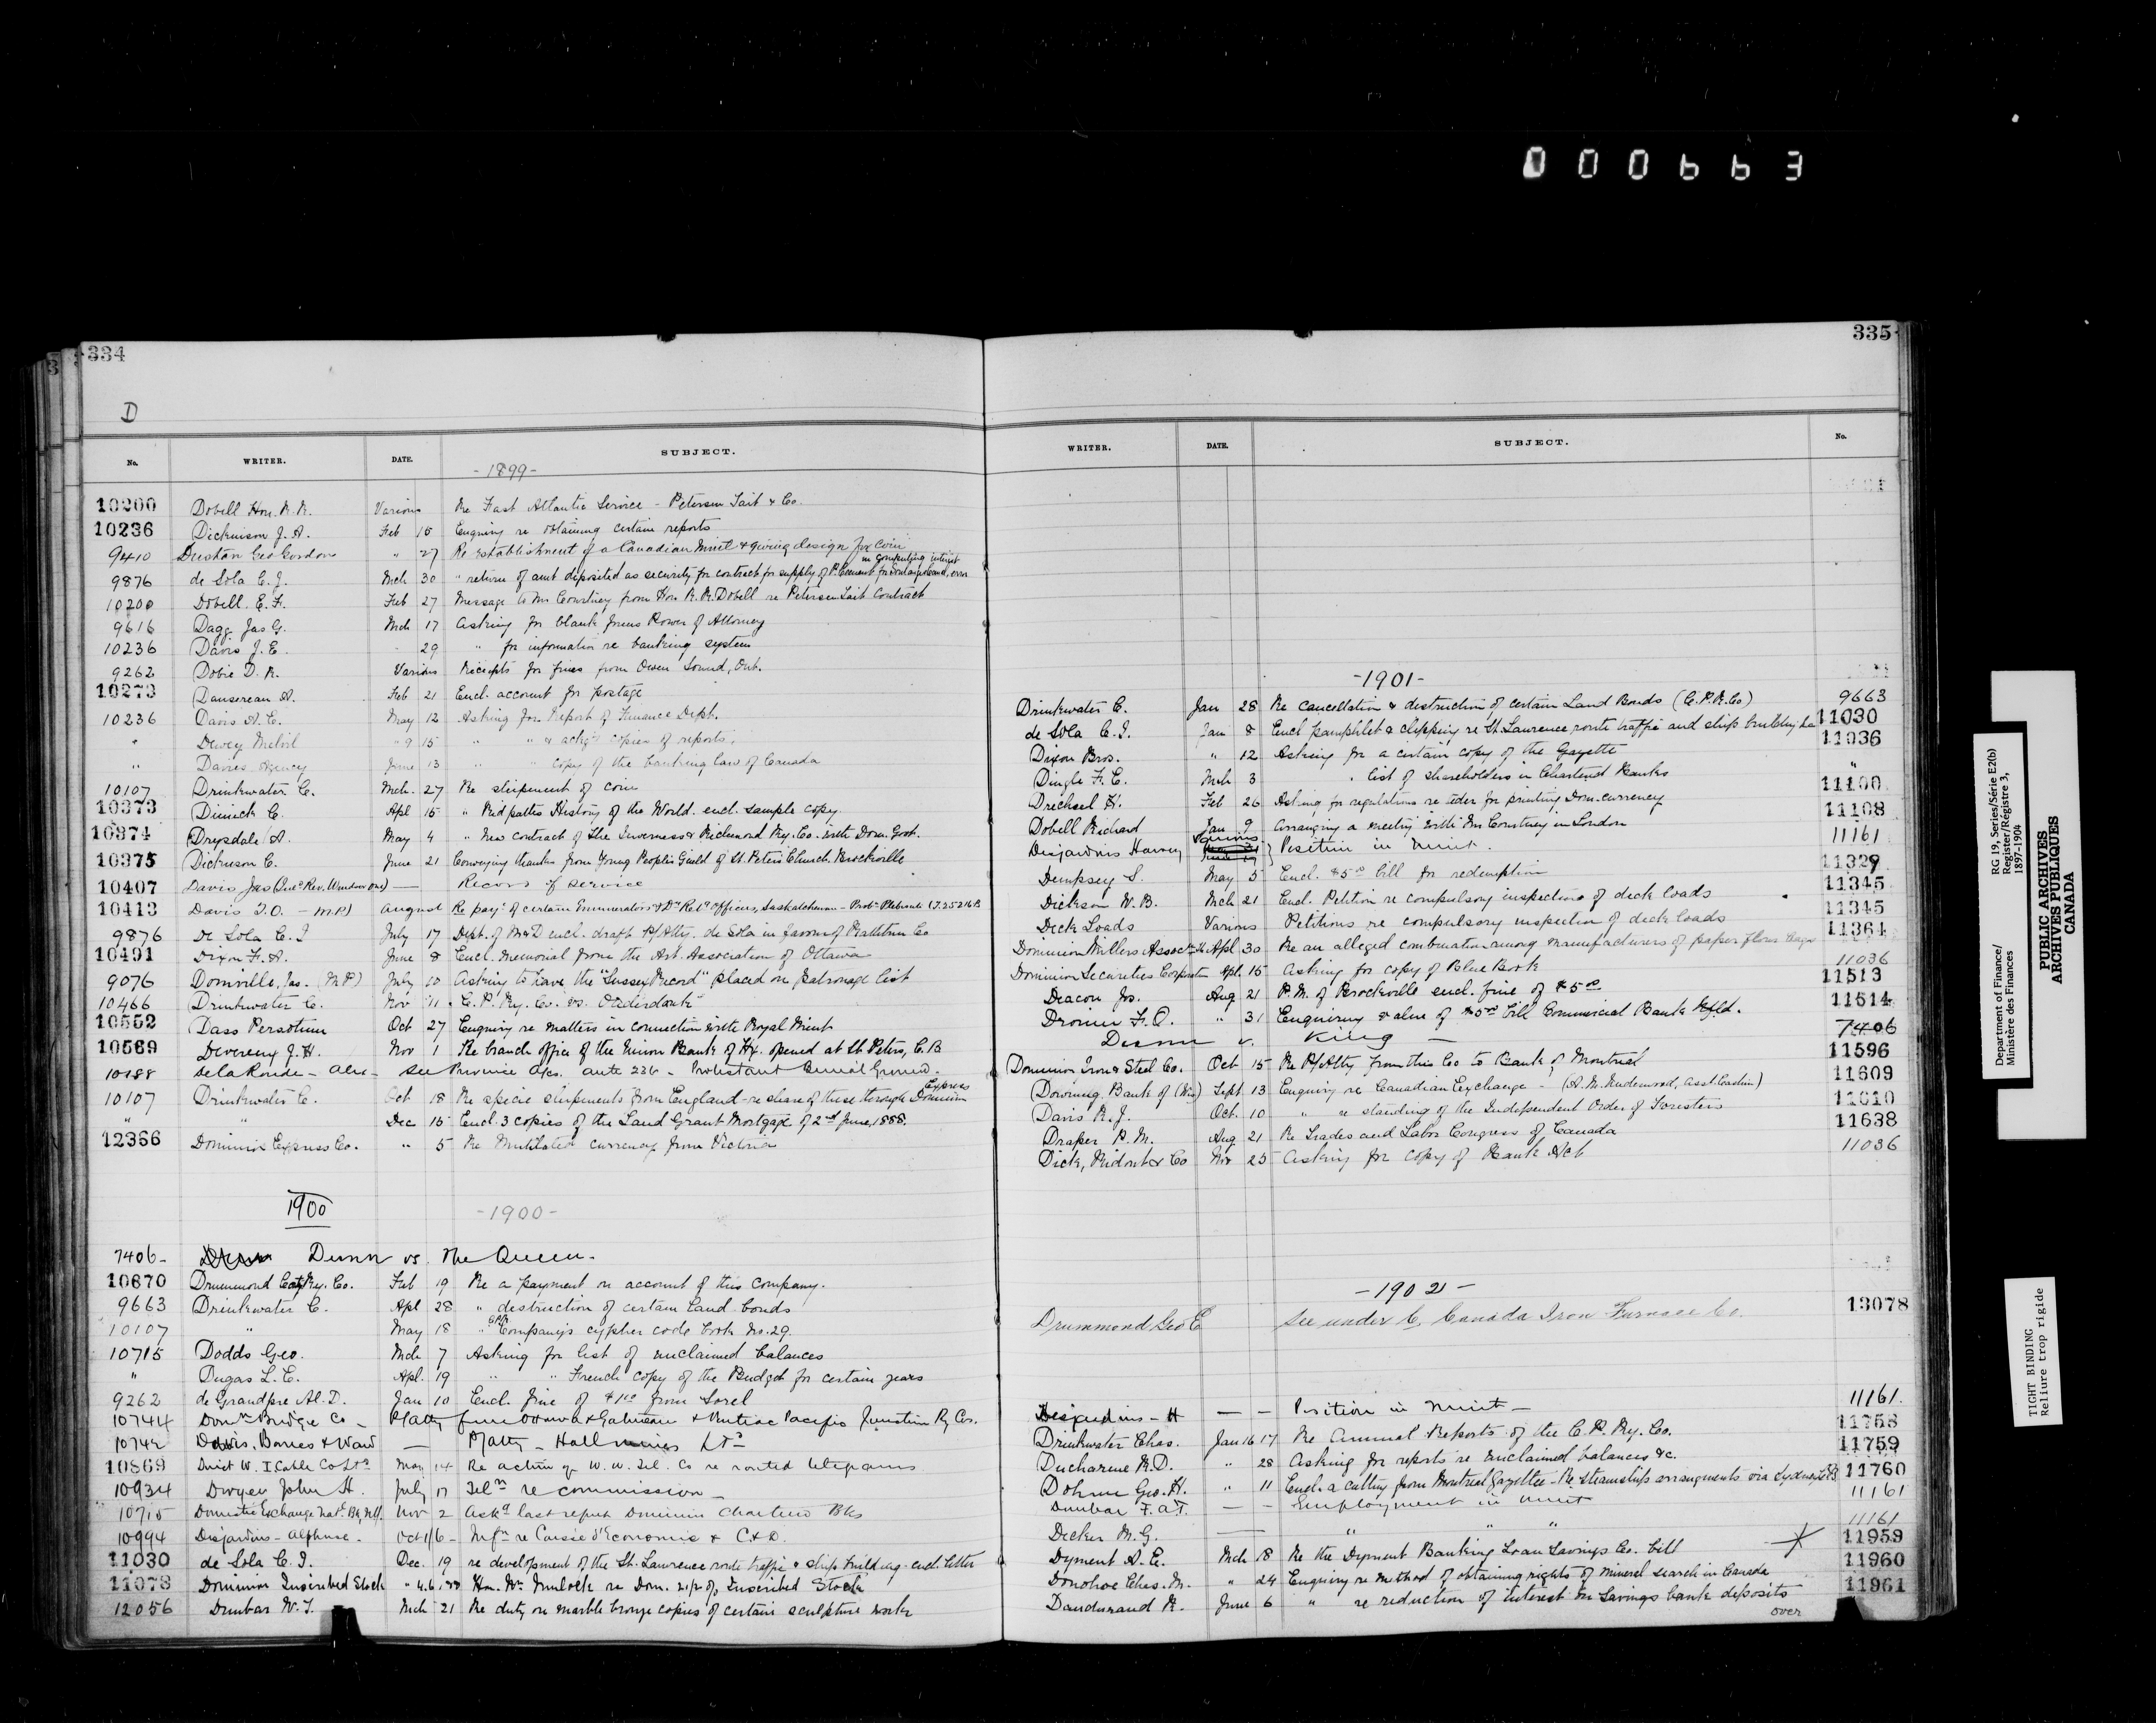 000663
334
D
No. WRITER. DATE. SUBJECT.
-1899-
10200 Dobell Hon. R.R. Various Re Fast Atlantic Service - Petersen Tait & Co.
10236 Dickinson J. A. Feb 15 Enquiry re obtaining certain reports
9410 Dustan Geo Gordon " 27 Re establishment of a Canadian Mint & giving design for coin
in computing interest
9876 de Sola C. J. Mch 30 " return of amt deposited as security for contract for supply of P. Cement for Soulanges Canal, error
10200 Dobell. E. F. Feb 27 Message to Mr Courtney from Hon R. R. Dobell re Petersen Tait Contract
9616 Dagg Jas G. Mch 17 Asking for blank forms Power of Attorney
10236 Davis J. E. 29 " for information re banking system
9262 Dobie D. R. Various Receipts for fines from Owen Sound, Ont.
10273 Dansereau A. Feb 21 Encl. account for postage
10236 Davis A. C. May 12 Asking for Report of Finance Dept.
" Dewey Melvil " 9 15 " " & ackg copies of reports.
" Davies Agency June 13 " " copy of the banking law of Canada
10107 Drinkwater C. Mch. 27 Re shipment of coin
10373 Dinick C. Apl 15 " Ridpaths History of the World. encl. sample copy
10374 Drysdale A. May 4 " New contract of the Inverness & Richmond Ry. Co. with Dom. Govt.
10375 Dickinson C. June 21 Conveying thanks from Young Peoples Guild of St. Peters Church. Brockville
10407 Davis Jas (Inld Rev. Windsor Ont) — Record of service
10413 Davis T.O. - M.P.) August Re payt of certain Enumerators & Dy Retg officers, Saskatchewan
9876 De Sola C. I July 17 Dept. of M&D encl. draft P/Atty. de Sola in favour of Rathbun Co
10491 Dixon F. A. June 8 Encl. Memorial from the Art. Association of Ottawa
9076 Domville, Jas. (M.P) July 10 Asking to have the "Sussex Record" placed on patronage list
10466 Drinkwater C. Nov 11 C. P. Ry. Co. vs.
10552 Dass Persotum Oct 27 Enquiry re matters in connection with Royal Mint
10569 Devereux J. H. Nov 1 Re branch office of the Union Bank of Hx. opened at St. Peters, C. B
10188 de la Ronde - Alex - See Province a/cs. ante 236 - Protestant Burial Ground.
Express
10107 Drinkwater C. Oct 18 Re specie shipments from England - re share of these through Dominion
" " Dec 15 Encl. 3 copies of the Land Grant Mortgage of 2nd June, 1888.
12366 Dominion Express Co. " 5 Re Mutilated currency from Victoria
1900 -1900-
7406- Dunn vs. The Queen.
10670 Drummond Coty Ry. Co. Feb 19 Re a payment on account of this company.
9663 Drinkwater C. Apl 28 " destruction of certain Land bonds
10107 " May 18 " CPR Company's cypher code book No. 29.
10715 Dodds Geo. Mch 7 Asking for list of unclaimed balances
" Dugas L. C. Apl. 19 " " French copy of the Budget for certain years
9262 de Grandpre Al. D. Jan 10 Encl. fine of $1.00 from Sorel
10744 Domn Bridge Co - P/atty from Ottawa & Gatineau & Pontiac Pacific Junction Ry Cos.
10742 Davis, Barnes & Ward — P/atty - Hall mines Ltd
10869 Direct W. I Cable Co Ltd May 14 Re action of W. W. Tel. Co re routed telegrams
10934 Dwyer John H. July 17 Telm re commission -
10715 Domestic Exchange Natl. Bk, N.Y. Nov 2 Askg last report Dominion Chartered Bks
10994 Desjardins - Alphonse. Oct 1/6 - Mfn re Caisse d'Economie & C&D.
11030 de Sola C. I. Dec. 19 re development of the St. Lawrence route traffic & ship building - encl. letter
11078 Dominion Inscribed Stock " 4.6. Hon. Wm Mulock re Dom. 2 1/2 % Inscribed Stock
12056 Dunbar W. T. Mch 21 Re duty on marble bronze copies of certain sculpture work
335
WRITER. DATE. SUBJECT. No.
-1901-
Drinkwater C. Jan 28 Re cancellation & destruction of certain Land Bonds (C.P.R.Co) 9663
de Sola C. I. Jan 8 Encl pamphlet & clipping re St. Lawrence route traffic and ship building 11030
Dixon Bros. " 12 Asking for a certain copy of the Gazette 11036
Dingle F. C. Mch 3 " list of shareholders in Chartered Banks "
Drechsel H. Feb 26 Asking for regulations re tender for printing Dom. currency 11100
Dobell Richard Jan 9 arranging a meeting with Mr Courtney in London 11108
Desjardins Harvey Various } Position in Mint. 11161
Dempsey S. May 5 Encl. $5.00 bill for redemption 11329
Dickson W. B. Mch 21 Encl. Petition re compulsory inspection of deck loads 11345
Deck Loads Various Petitions re compulsory inspection of deck loads 11345
Dominion Millers Assoc. Apl 30 Re an alleged combination among manufacturers of paper flour bags 11364
Dominion Securities Corporation Apl. 15 Asking for copy of Blue Book 11036
Deacon Jos. Aug 21 P. M. of Brockville encl. fine of $5.00 11513
Dronin F. O. " 31 Enquiring value of $5.00 bill Commercial Bank Nfld. 11514
Dunn v. King - 7406
Dominion Iron & Steel Co. Oct 15 Re P/Atty from this Co to Bank of Montreal 11596
Downing, Bank of (Wis) Sept 13 Enquiry re Canadian Exchange - (A. M. Underwood, Asst Cashier) 11609
Davis R. J. Oct. 10 " re standing of the Independent Order of Foresters 11610
Draper P. M. Aug 21 Re Trades and Labor Congress of Canada 11638
Dick, Ridout & Co Nov 25 Asking for copy of Bank Act 11036
-1902-
Drummond Geo E See under C, Canada Iron Furnace Co. 13078
Desjardins - H — — Position in Mint - 11161.
Drinkwater Chas. Jan 16 17 Re Annual Reports of the C. P. Ry. Co. 11758
Ducharme R.D. " 28 Asking for reports re unclaimed balances &c. 11759
Dohm Geo. H. " 11 Encl. a cutting from Montreal Gazette - Re steamship arrangements via Sydney 11760
Dunbar F.A.T. — — Employment in Mint 11161
Decker M. G. — " " " 11161
Dyment A. E. Mch 18 Re the Dyment Banking Loan Savings Co. bill 11959
Donohoe Chas. M. " 24 Enquiry re method of obtaining rights of mineral search in Canada 11960
Dandurand R. June 6 " re reduction of interest on savings bank deposits 11961
over
Department of Finance/ Ministère des Finances
RG 19, Series/Série E2(b) Register/Registre 3, 1897-1904
PUBLIC ARCHIVES
ARCHIVES PUBLIQUES
CANADA
TIGHT BINDING
Reliure trop rigide